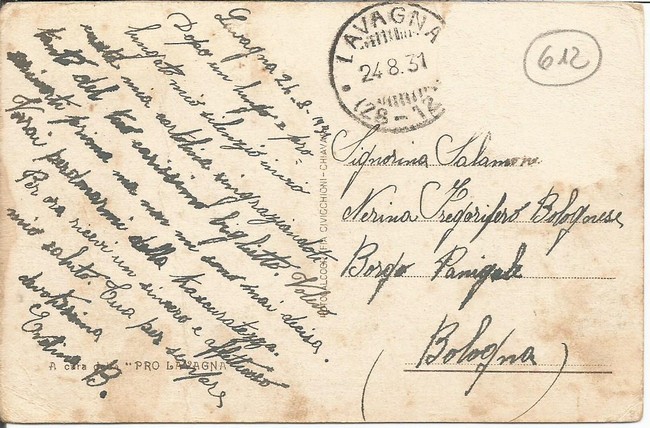 Lavagna 24-8-1931
Dopo un lungo e pro
lungato mio silenzio invio
questa mia cartolina ringraziandoti
tanto del tuo carissimo biglietto. Volevo
scriverti prima ma non mi sono mai decisa.
Vorrai perdonarmi della trascuratezza.
Per ora ricevi un sincero e affettuoso
mio saluto. Tua per sempre
devotissima
B.
A cura della "PRO LAVAGNA"
FOTOALCOGRAFIA CIVICCHIONI-CHIAVARI
LAVAGNA
24.8.31
612
Signorina Salamone
Nerina Fregorifero Bolognese
Borgo Panigale
(Bologna)